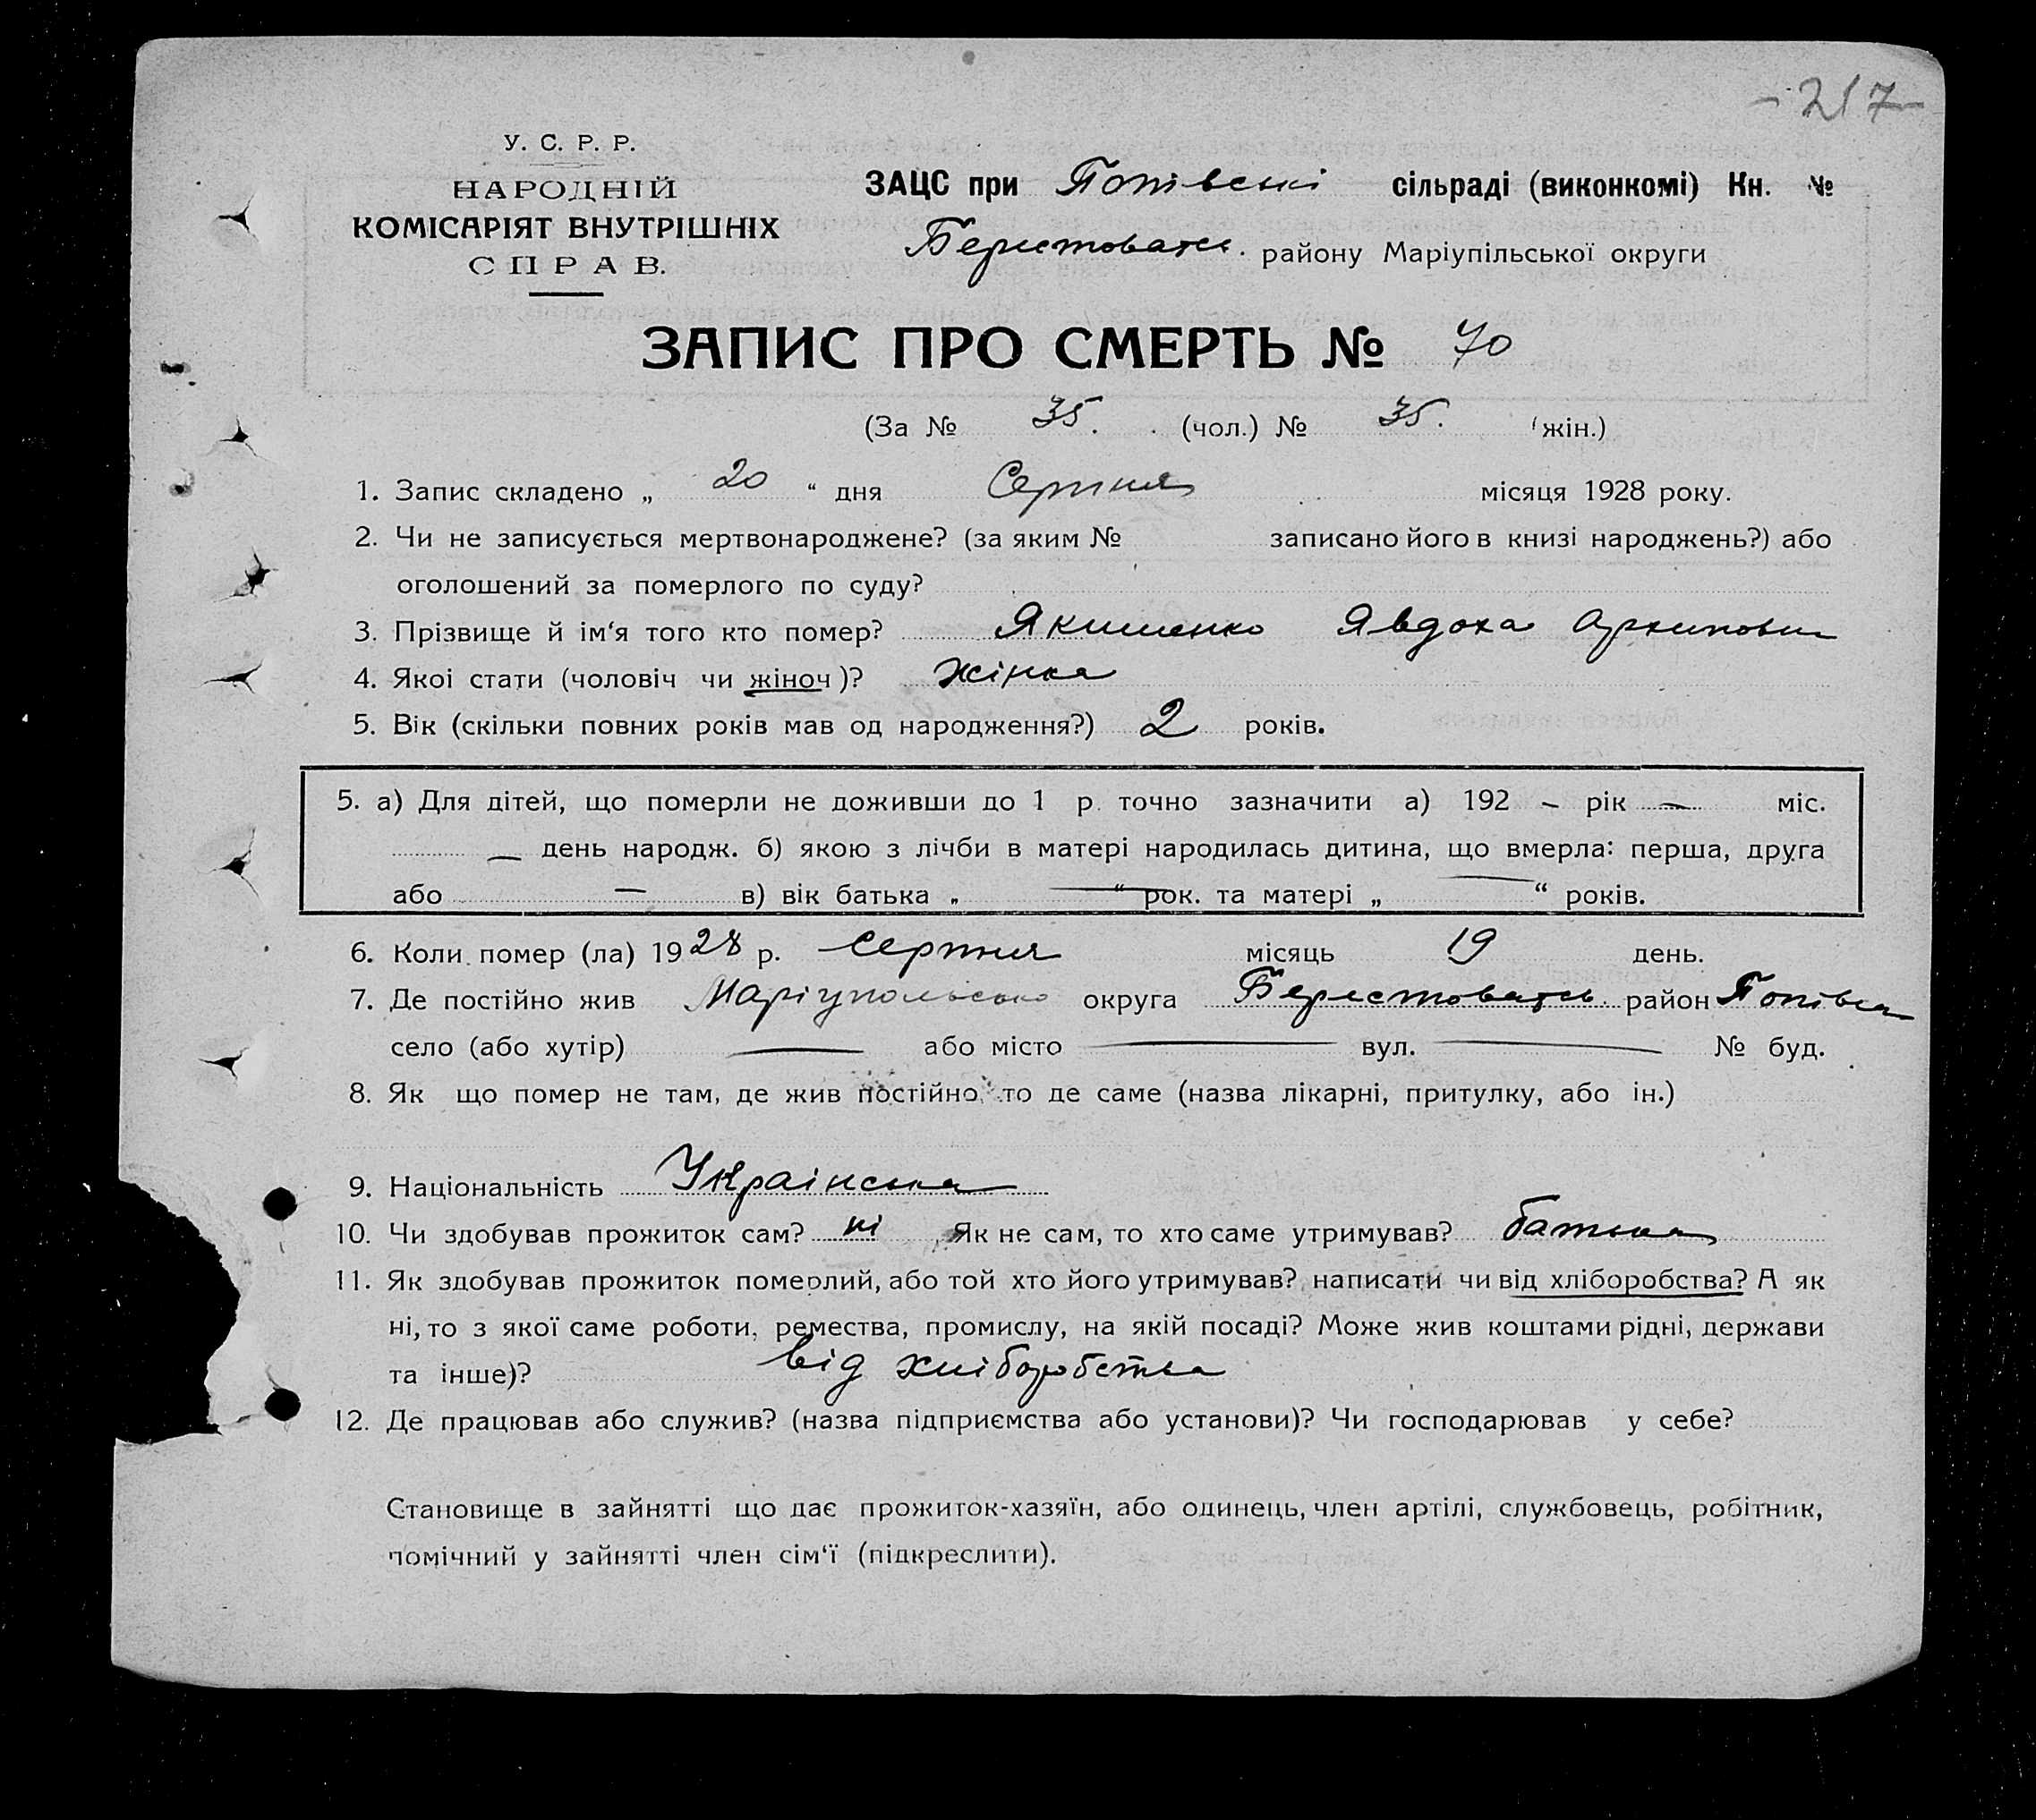 - 217 -
У. С. Р. Р.
НАРОДНІЙ
КОМІСАРІЯТ ВНУТРІШНІХ
СПРАВ.
ЗАЦС при Попівські сільраді (виконкомі) Кн. №
Берестоватсь. району Маріупільської округи
ЗАПИС ПРО СМЕРТЬ № 70
(За № 35. (чол.) № 35. (жін.)
1. Запис складено „ 20 “ дня Серпня місяця 1928 року.
2. Чи не записується мертвонароджене? (за яким № записано його в книзі народжень?) або
оголошений за померлого по суду?
3. Прізвище й ім‘я того кто помер? Якименко Явдоха Архиповна
4. Якоі стати (чоловіч чи жіноч)? жінка
5. Вік (скільки повних років мав од народження?) 2 років.
5. а) Для дітей, що померли не доживши до 1 р. точно зазначити а) 192 – рік — міс.
— день народж. б) якою з лічби в матері народилась дитина, що вмерла: перша, друга
або — в) вік батька „ — “ рок. та матері „ — “ років.
6. Коли помер (ла) 1928 р. серпня місяць 19 день.
7. Де постійно жив Маріупольсько округа Берестоватсь. район Попівка
село (або хутір) — або місто — вул. — № буд.
8. Як що помер не там, де жив постійно, то де саме (назва лікарні, притулку, або ін.)
9. Національність Украінська
10. Чи здобував прожиток сам? ні Як не сам, то хто саме утримував? батька
11. Як здобував прожиток померлий, або той хто його утримував? написати чи від хліборобства? А як
ні, то з якої саме роботи, ремества, промислу, на якій посаді? Може жив коштами рідні, держави
та інше)? від хліборобства
12. Де працював або служив? (назва підприємства або установи)? Чи господарював у себе?
Становище в зайнятті що дає прожиток-хазяїн, або одинець, член артілі, службовець, робітник,
помічний у зайнятті член сім‘ї (підкреслити).